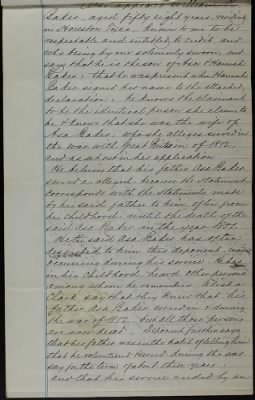 Also appeared
Baker, aged fifty eight years, residing
in Houston Texas, known to me to be
respectable and entitled to credit and
who being by me solemnly sworn, and
says that he is the son of Asa & Hannah
Baker, that he was present when Hannah
Baker signed her name to the attached
declaration. he knows the claimant
to be the identical person she claims to
be & knows that she was the wife of
Asa Baker, who she alleges served in
the war with Great Britain of 1812.
and as shown in her application
He believes that his father Asa Baker
served as alleged because the statements
correspond with the statements made
by his said father to him, often from
his childhood, until the death of the
said Asa Baker in the year
He the said Asa Baker has often
to him this deponent
occurring during his service. He has
in his childhood heard other persons
among whom he remembers Elisha
Clark say that they knew that his
father Asa Baker served in & during
the war of 1812 but all those persons
are now dead. Deponent further says
that his father was in the habit of telling him
that he volunteered & served during the war
say for the term of about three years.
and that his service ended by an